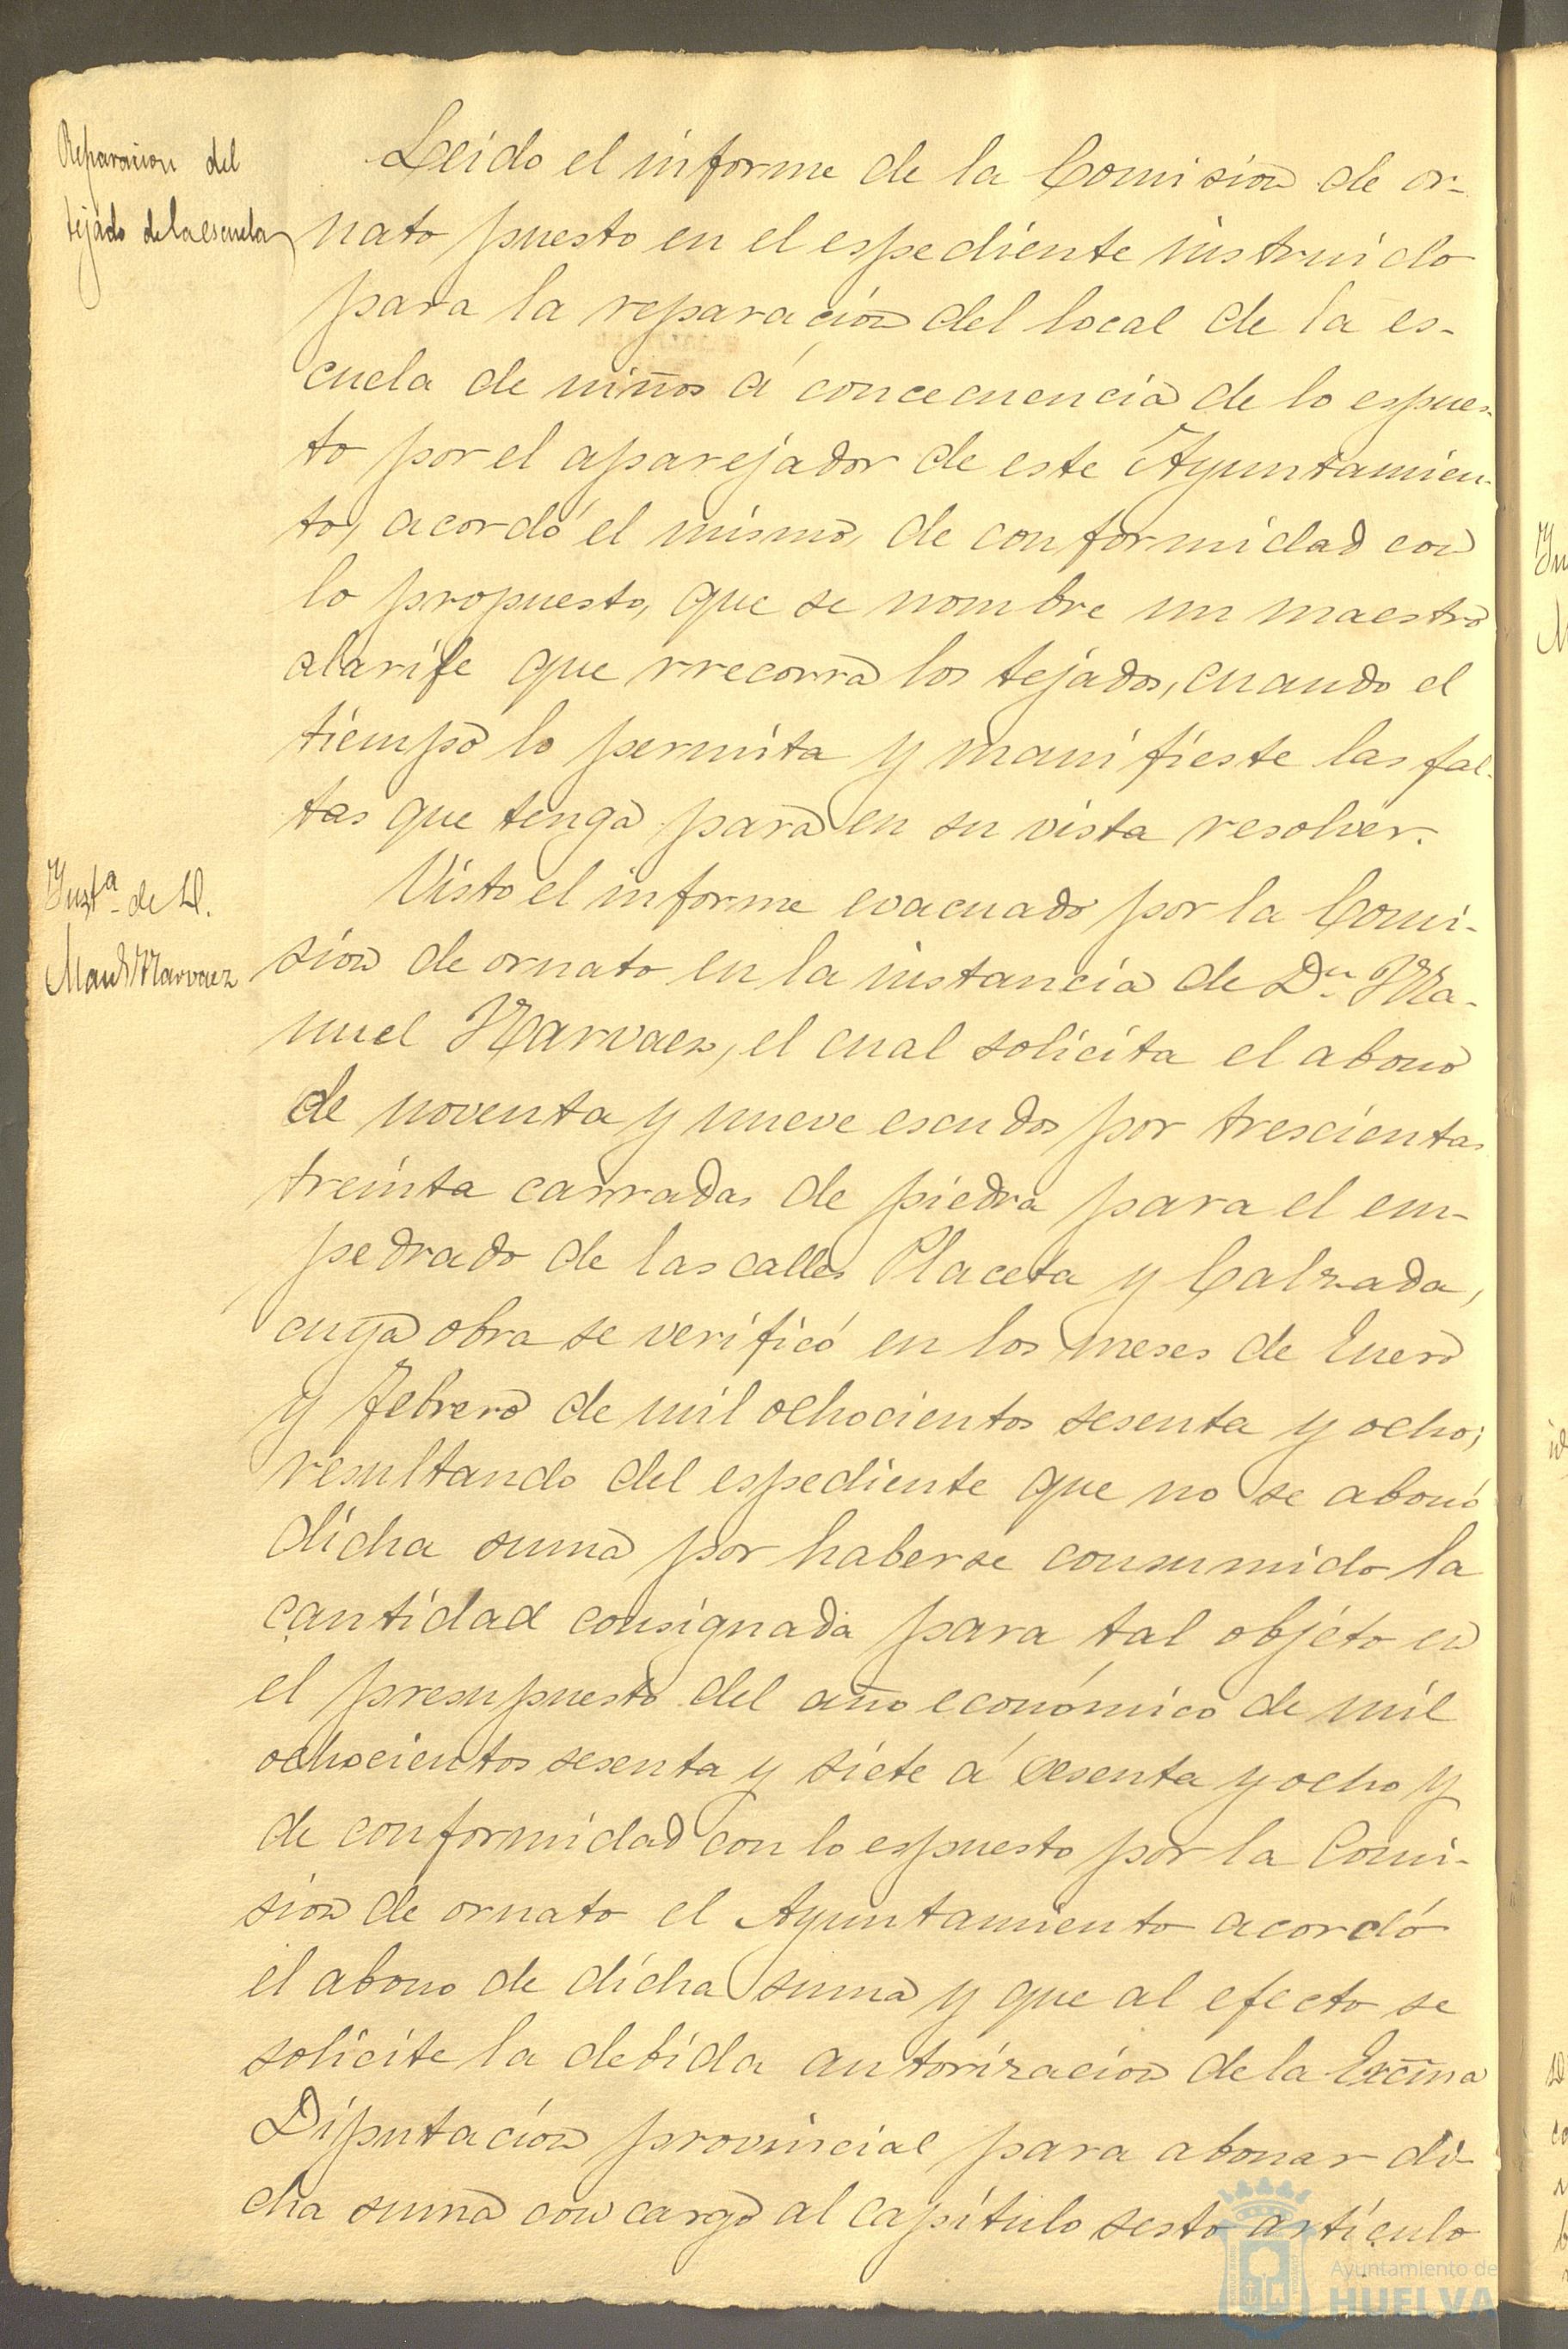 Reparacion del
tejado de la escuela
Leido el informe de la Comision de or-
nato puesto en el espediente instruido
para la reparación del local de la es-
cuela de niños á concecuencia de lo espues-
to por el aparejador de este Ayuntamien-
to, acordó el mismo, de conformidad con
lo propuesto, que se nombre un maestro
alarife que rrecorra los tejados, cuando el
tiempo lo permita y manifieste las fal-
tas que tenga para en su vista resolver.
Ynst.ª de D.
Man.l Narvaez
Visto el informe evacuado por la Comi-
sion de ornato en la instancia de D.n Ma-
nuel Narvaez, el cual solicita el abono
de noventa y nueve escudos por trescientas
treinta carradas de piedra para el em-
pedrado de las calles Placeta y Calzada,
cuya obra se verificó en los meses de Enero
y Febrero de mil ochocientos sesenta y ocho;
resultando del espediente que no se abonó
dicha suma por haberse consumido la
cantidad consignada para tal objeto en
el presupuesto del año económico de mil
ochocientos sesenta y siete á sesenta y ocho y
de conformidad con lo espuesto por la Comi-
sion de ornato el Ayuntamiento acordó
el abono de dicha suma y que al efecto se
solicite la debida autorizacion de la Excma
Diputación provincial para abonar di-
cha suma con cargo al capítulo sesto artículo
Ayuntamiento de
HUELVA